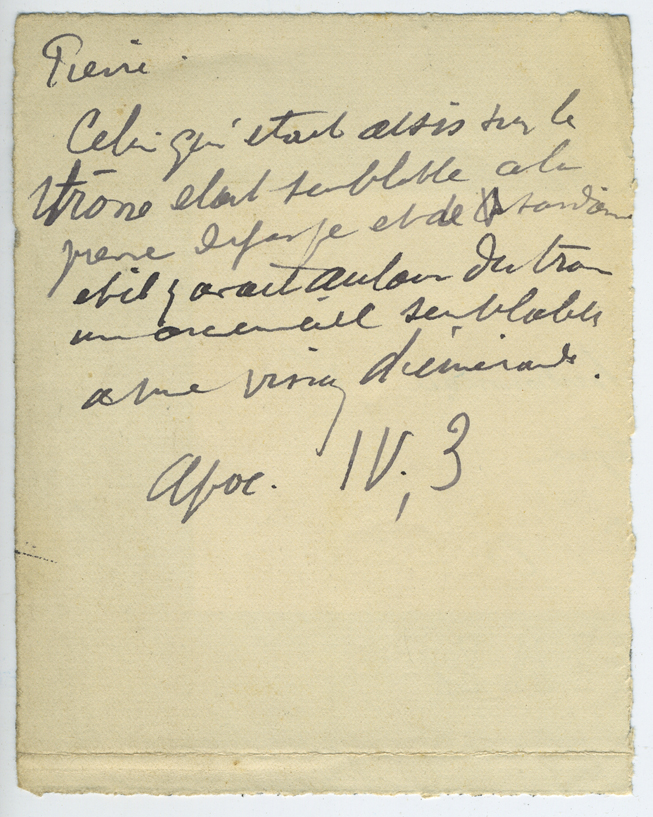 Pierre.
Celui qui était assis sur le
trône était semblable à la
pierre de jaspe et de sardoine
et il y avait autour du trone
un arc en ciel semblable
a une vision d'émeraude.
Apoc. IV, 3